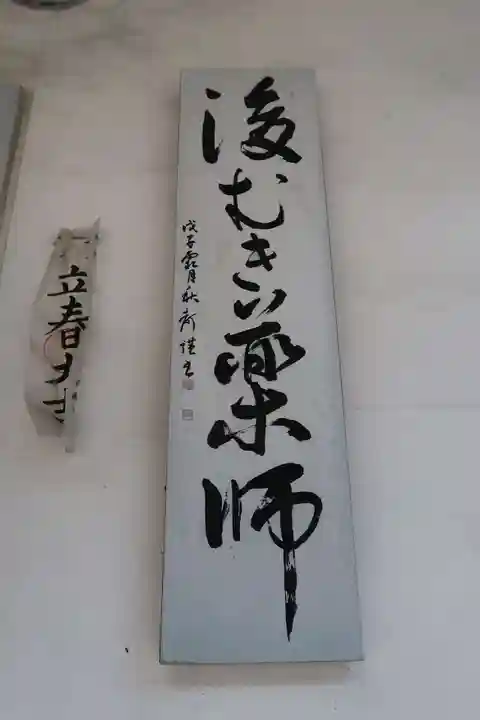 後むき薬師
戊子霜月秋斎謹書
立春大吉